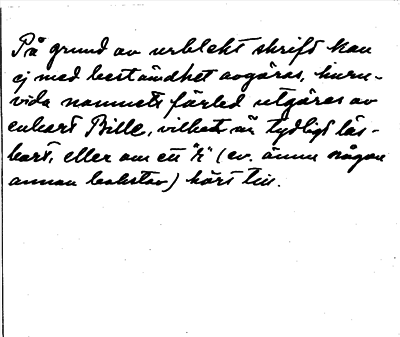 På grund av urblekt skrift kan
ej med bestämdhet avgöras, huru-
vida namnets förled utgöres av
enbart Bille, vilket är tydligt läs-
bart, eller om ett "h" (ev. ännu någon
annan bokstav) hört till.